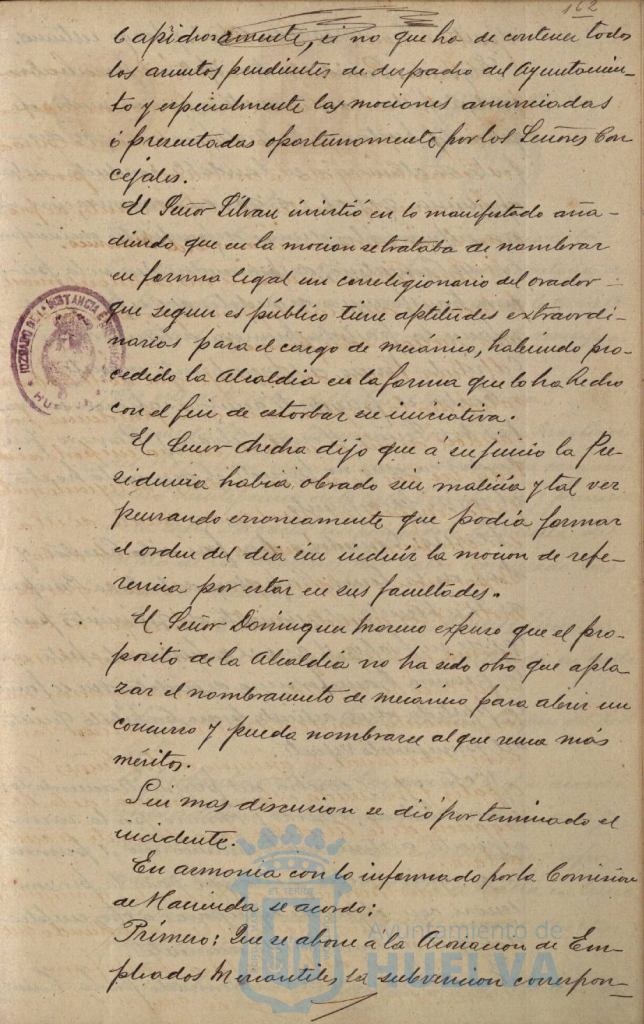 162
caprichosamente, si no que ha de contener todos
los asuntos pendientes de despacho del Ayuntamien-
to y especialmente las mociones anunciadas
ó presentadas oportunamente por los Señores Con
cejales.
El Señor Silvan insistió en lo manifestado aña-
diendo que en la mocion se trataba de nombrar
en forma legal un correligionario del orador
que segun es público tiene aptitudes extraordi-
narias para el cargo de mecánico, habiendo pro-
cedido la Alcaldia en la forma que lo ha hecho
con el fin de estorbar su iniciativa.
El Señor Checha dijo que á su juicio la Pre-
sidencia habia obrado sin malicia y tal vez
pensando erroneamente que podia formar
el orden del dia sin incluir la mocion de refe-
rencia por estar en sus facultades.
El Señor Dominguez Moreno expuso que el pro-
posito de la Alcaldia no ha sido otro que apla
zar el nombramiento de mecánico para abrir un
concurso y pueda nombrarse al que reuna más
méritos.
Sin mas discusion se dió por terminado el
incidente.
En armonia con lo informado por la Comision
de Hacienda se acordo:
Primero: Que se abone á la Asociacion de Em-
pleados Mercantiles la subvencion correspon-
JUZGADO DE 1ª INSTANCIA E
HUELVA
Ayuntamiento de
HUELVA